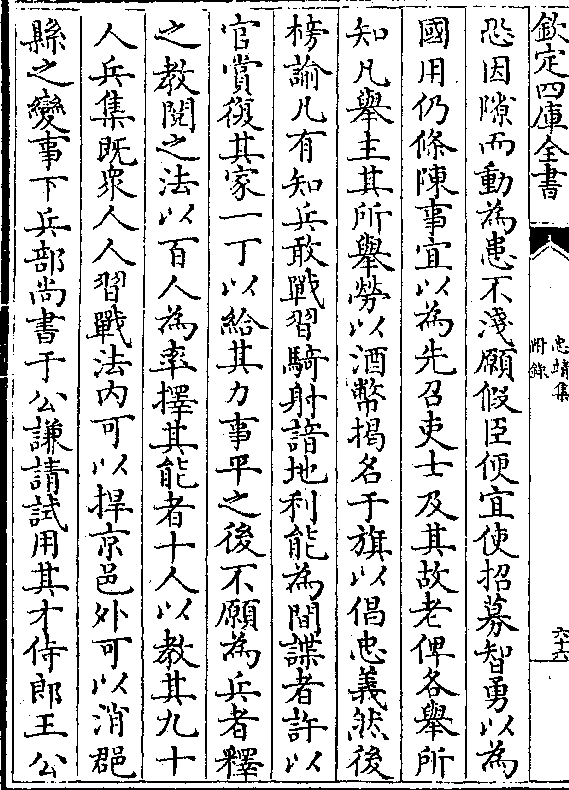 欽定四庫全書
忠靖集
附錄
六十六
恐因隙而動為患不淺願假臣便宜使招募智勇以為
國用仍條陳事宜以為先召吏士及其故老俾各舉所
知凡舉主其所舉勞以酒幣揭名于旗以倡忠義然後
榜諭凡有知兵敢戰習騎射諳地利能為間諜者許以
官賞復其家一丁以給其力事平之後不願為兵者釋
之教閱之法以百人為率擇其能者十人以教其九十
人兵集既衆人人習戰法内可以捍京邑外可以消郡
縣之變事下兵部尚書于公謙請試用其才侍郎王公